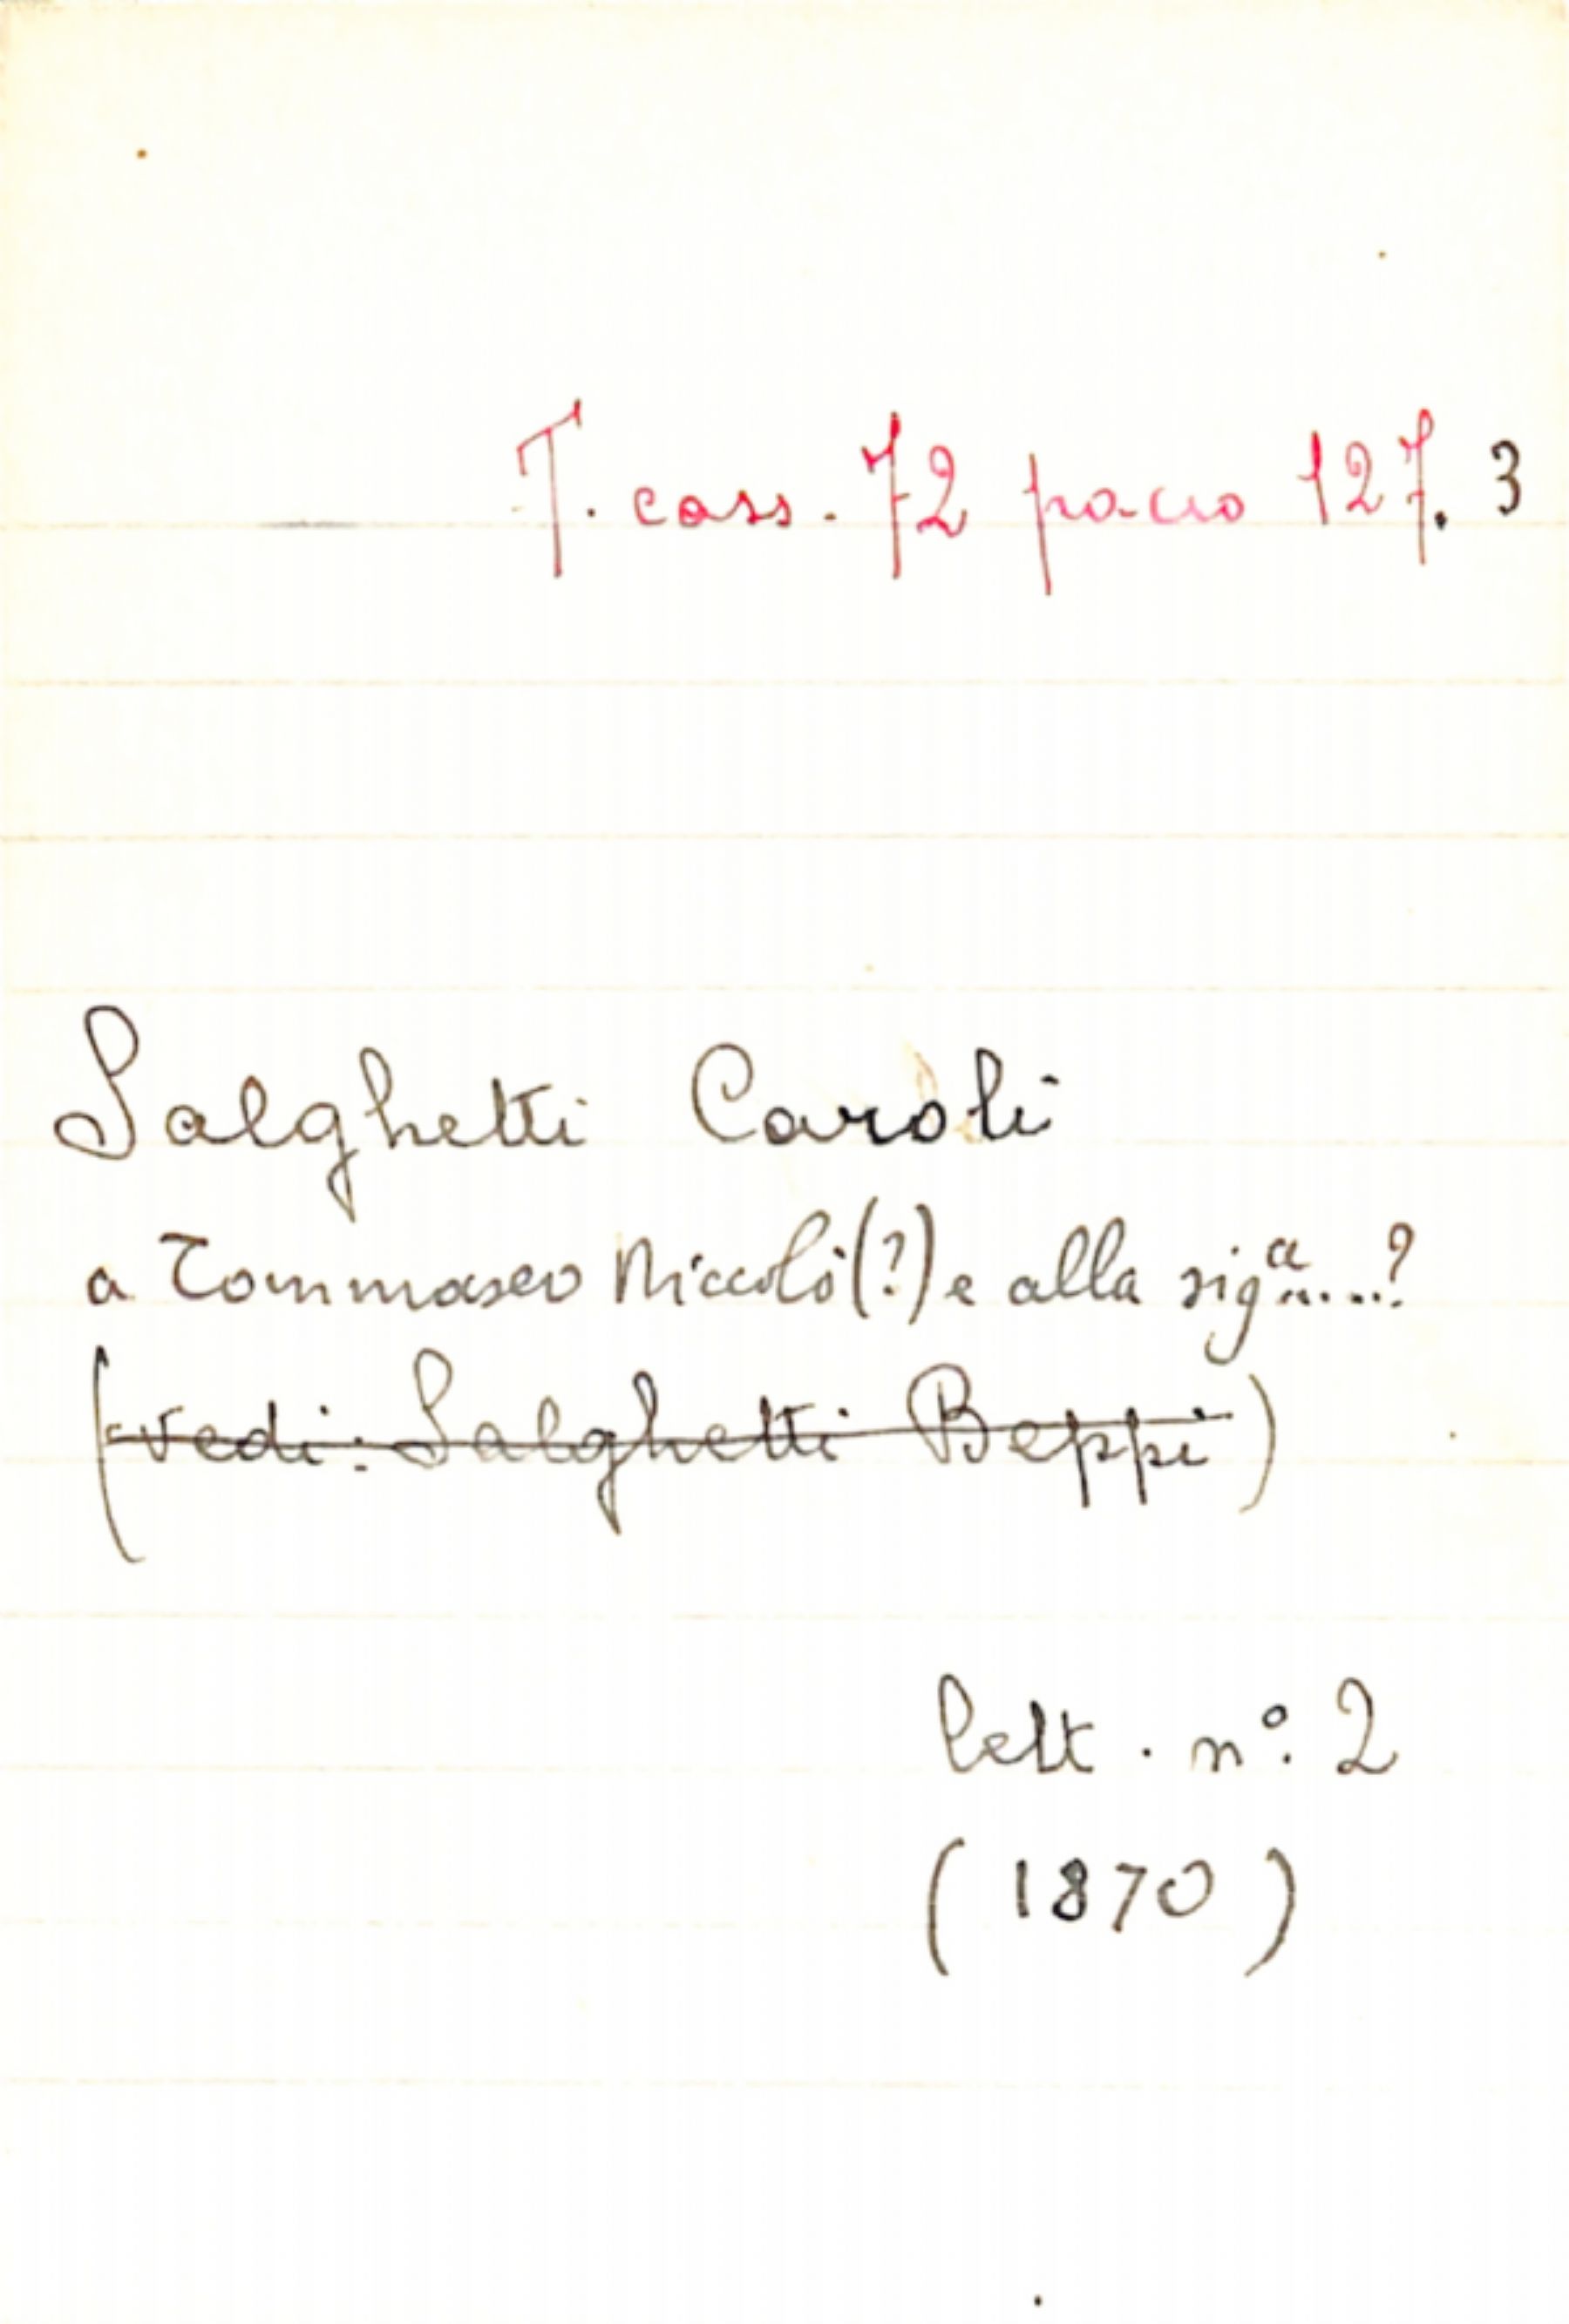 T. cass. 72 pacco 127. 3
Salghetti Caroli
a Tommaseo Niccolò(?) e alla sigª....?
(vedi: Salghetti Beppi)
lett. nº. 2
(1870)